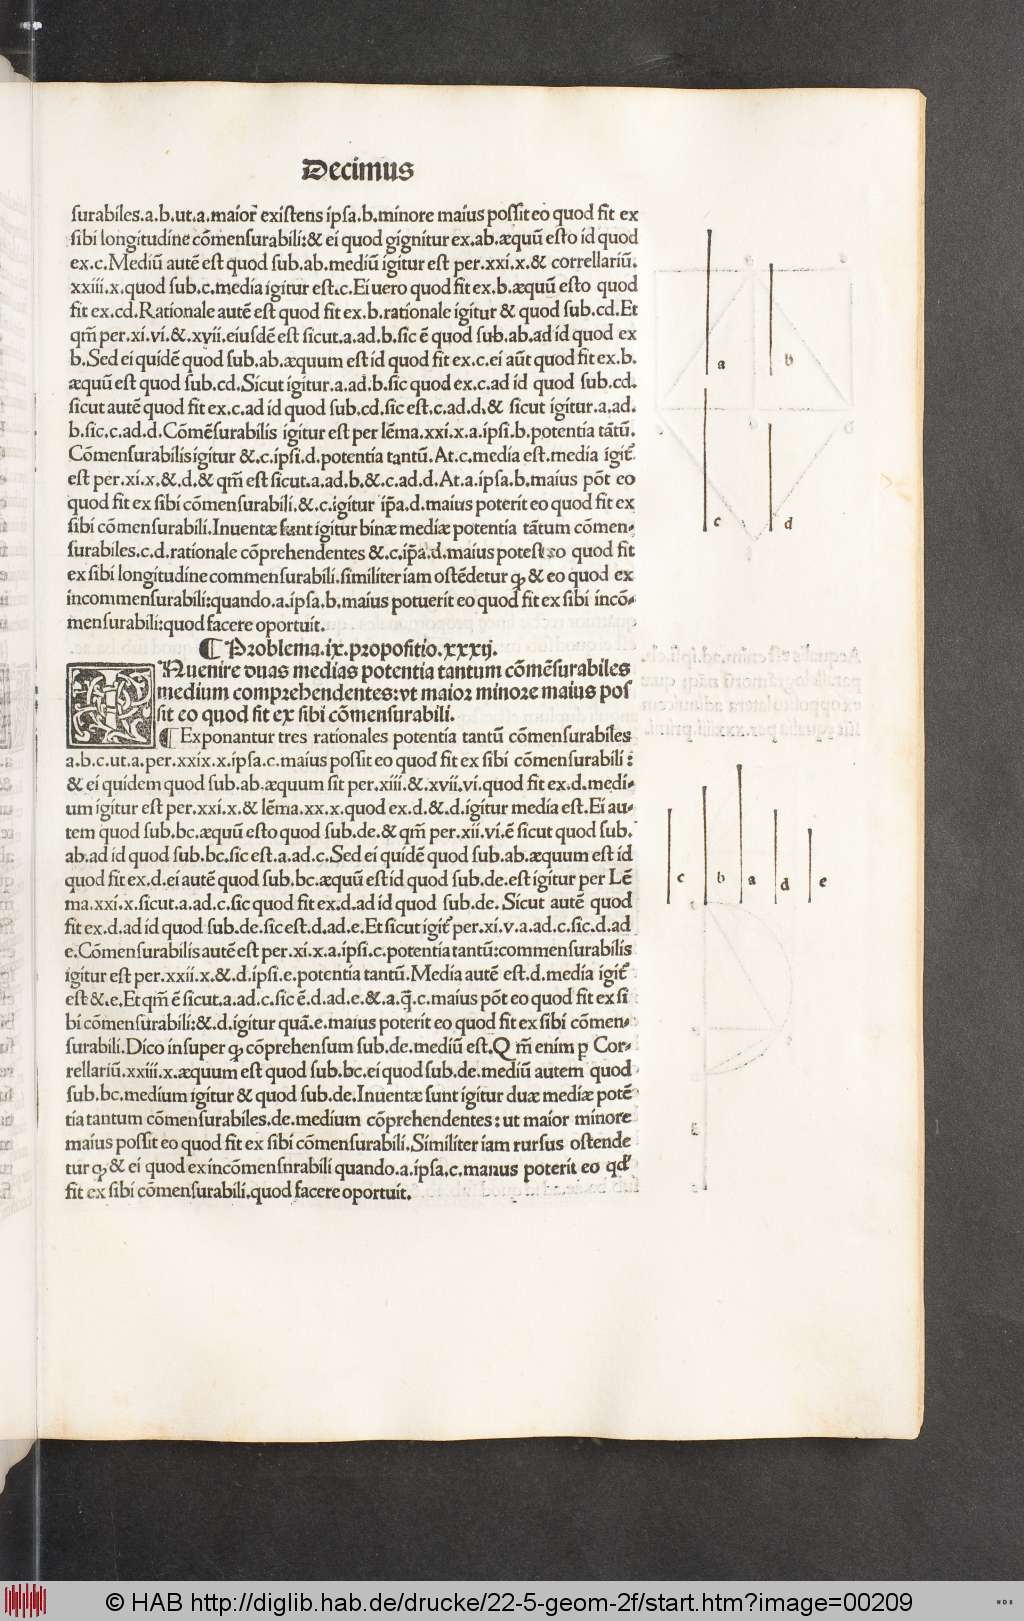 Decimus
surabiles.a.b.ut.a.maior̃ existens ipsa.b.minore maius possit eo quod fit ex
sibi longitudine cōmensurabili:& ei quod gignitur ex.ab.æquū esto id quod
ex.c.Mediū autē est quod sub.ab.mediū igitur est per.xxi.x.& correllariū.
xxiii.x.quod sub.c.media igitur est.c.Ei uero quod fit ex.b.æquū esto quod
fit ex.cd.Rationale autē est quod fit ex.b.rationale igitur & quod sub.cd.Et
qm̄ per.xi.vi.&.xvii.eiusdē est sicut.a.ad.b.sic ē quod sub.ab.ad id quod ex
b.Sed ei quidē quod sub.ab.æquum est id quod fit ex.c.ei aūt quod fit ex.b.
æquū est quod sub.cd.Sicut igitur.a.ad.b.sic quod ex.c.ad id quod sub.cd.
sicut autē quod fit ex.c.ad id quod sub.cd.sic est.c.ad.d.& sicut igitur.a.ad.
b.sic.c.ad.d.Cōmēsurabilis igitur est per lēma.xxi.x.a.ipsi.b.potentia tātū.
Cōmensurabilis igitur &.c.ipsi.d.potentia tantū.At.c.media est.media igit̃
est per.xi.x.&.d.& qm̄ est sicut.a.ad.b.&.c.ad.d.At.a.ipsa.b.maius pōt eo
quod fit ex sibi cōmensurabili.&.c.igitur ip̄a.d.maius poterit eo quod fit ex
sibi cōmensurabili.Inuentæ sunt igitur binæ mediæ potentia tātum cōmen-
surabiles.c.d.rationale cōprehendentes &.c.ip̄a.d.maius potest eo quod fit
ex sibi longitudine commensurabili.similiter iam ostēdetur ꝙ & eo quod ex
incommensurabili:quando.a.ipsa.b.maius potuerit eo quod fit ex sibi incō-
mensurabili:quod facere oportuit.
¶ Problema.ix.propositio.xxxij.
INuenire duas medias potentia tantum cōmēsurabiles
medium comprehendentes:vt maior minore maius pos
sit eo quod fit ex sibi cōmensurabili.
¶ Exponantur tres rationales potentia tantū cōmensurabiles
a.b.c.ut.a.per.xxix.x.ipsa.c.maius possit eo quod fit ex sibi cōmensurabili:
& ei quidem quod sub.ab.æquum sit per.xiii.&.xvii.vi.quod fit ex.d.medi-
um igitur est per.xxi.x.& lēma.xx.x.quod ex.d.&.d.igitur media est.Ei au-
tem quod sub.bc.æquū esto quod sub.de.& qm̄ per.xii.vi.ē sicut quod sub.
ab.ad id quod sub.bc.sic est.a.ad.c.Sed ei quidē quod sub.ab.æquum est id
quod fit ex.d.ei autē quod sub.bc.æquū est id quod sub.de.est igitur per Lē
ma.xxi.x.sicut.a.ad.c.sic quod fit ex.d.ad id quod sub.de. Sicut autē quod
fit ex.d.ad id quod sub.de.sic est.d.ad.e.Et sicut igit̃ per.xi.v.a.ad.c.sic.d.ad
e.Cōmensurabilis autē est per.xi.x.a.ipsi.c.potentia tantū:commensurabilis
igitur est per.xxii.x.&.d.ipsi.e.potentia tantū.Media autē est.d.media igit̃
est &.e.Et qm̄ ē sicut.a.ad.c.sic ē.d.ad.e.&.a.q̄.c.maius pōt eo quod fit ex si
bi cōmensurabili:&.d.igitur quā.e.maius poterit eo quod fit ex sibi cōmen-
surabili.Dico insuper ꝙ cōprehensum sub.de.mediū est.Qm̄ enim p̱ Cor-
rellariū.xxiii.x.æquum est quod sub.bc.ei quod sub.de.mediū autem quod
sub.bc.medium igitur & quod sub.de.Inuentæ sunt igitur duæ mediæ potē
tia tantum cōmensurabiles.de.medium cōprehendentes:ut maior minore
maius possit eo quod fit ex sibi cōmensurabili.Similiter iam rursus ostende
tur ꝙ & ei quod ex incōmensnrabili quando.a.ipsa.c.maius poterit eo qđ
fit ex sibi cōmensurabili.quod facere oportuit.
a b
c d
c b a d e
© HAB http://diglib.hab.de/drucke/22-5-geom-2f/start.htm?image=00209